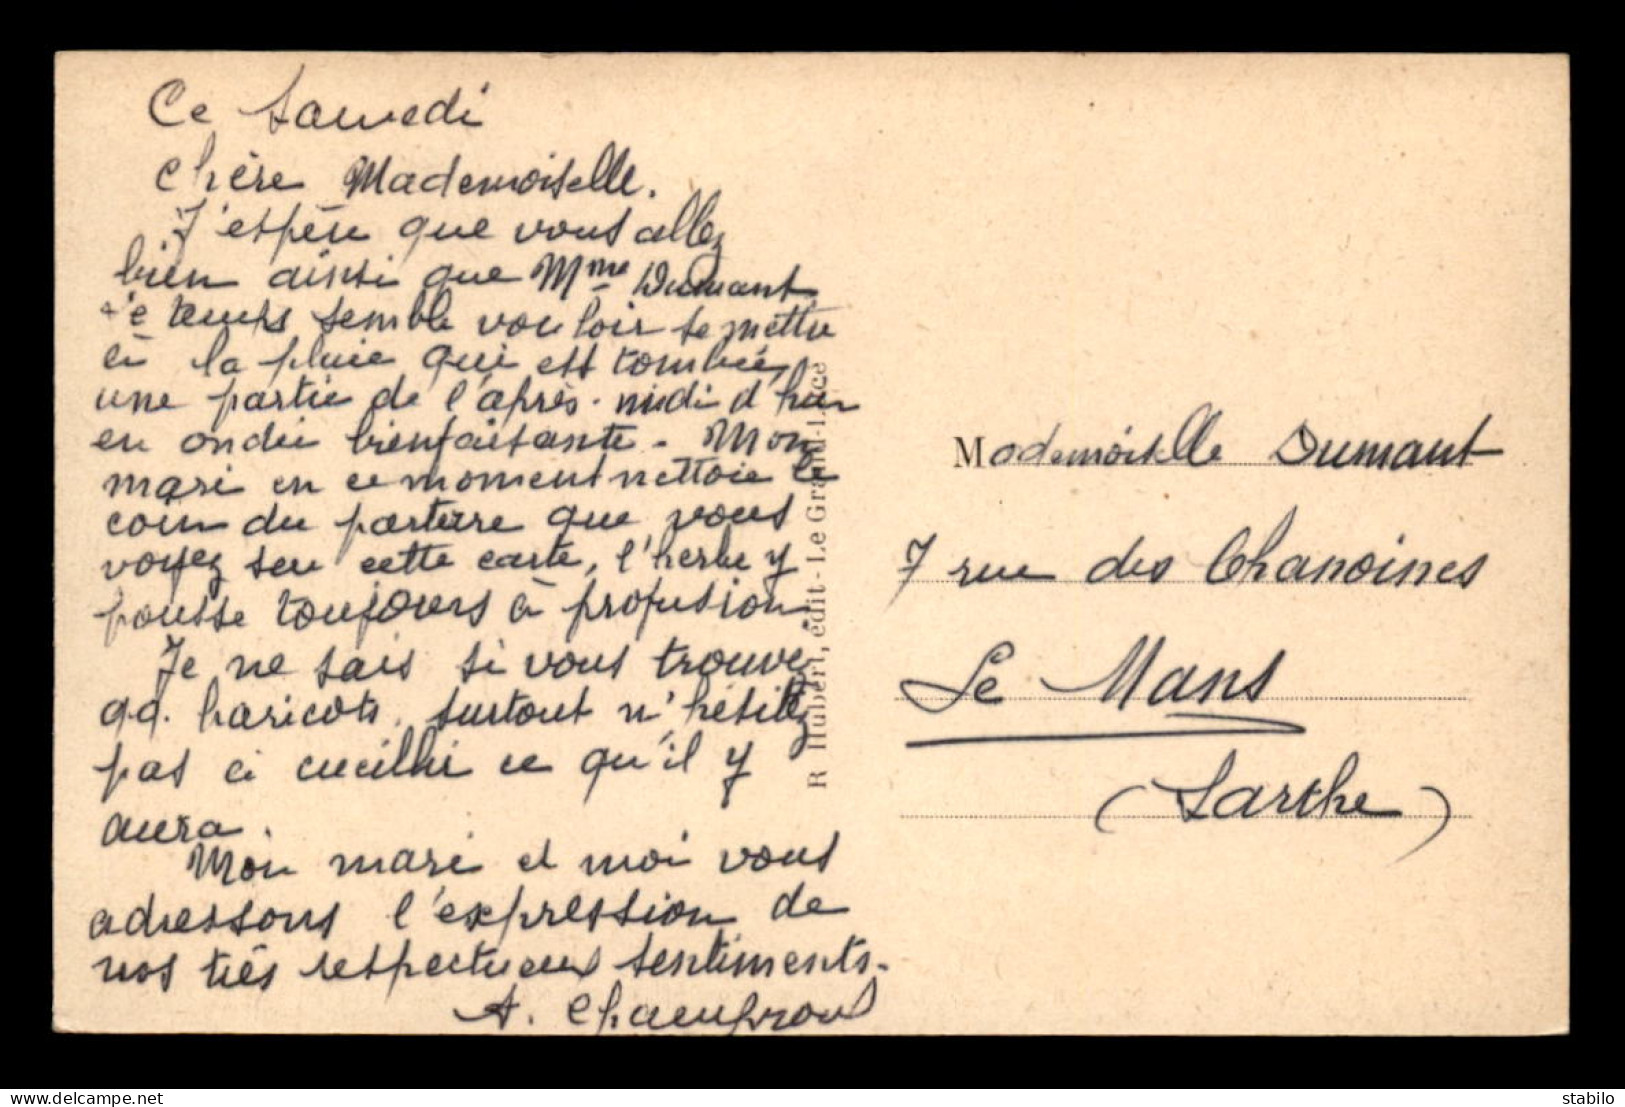 Ce Samedi
Chère Mademoiselle.
J'espère que vous allez
bien ainsi que Mme Dumant
le temps semble vouloir se mettre
à la pluie qui est tombée,
une partie de l'après-midi d'hier
en ondée bienfaisante. Mon
mari en ce moment nettoie le
coin du parterre que vous
voyez sur cette carte, l'herbe y
pousse toujours à profusion.
Je ne sais si vous trouvez
qq. haricots, surtout n'hésitez
pas à cueillir ce qu'il y
aura.
Mon mari et moi vous
adressons l'expression de
nos très respectueux sentiments.
A.
R Hubert, édit - Le Grand-Lucé
Mademoiselle Dumant
7 rue des Chanoines
Le Mans
(Sarthe)
delcampe.net
stabilo